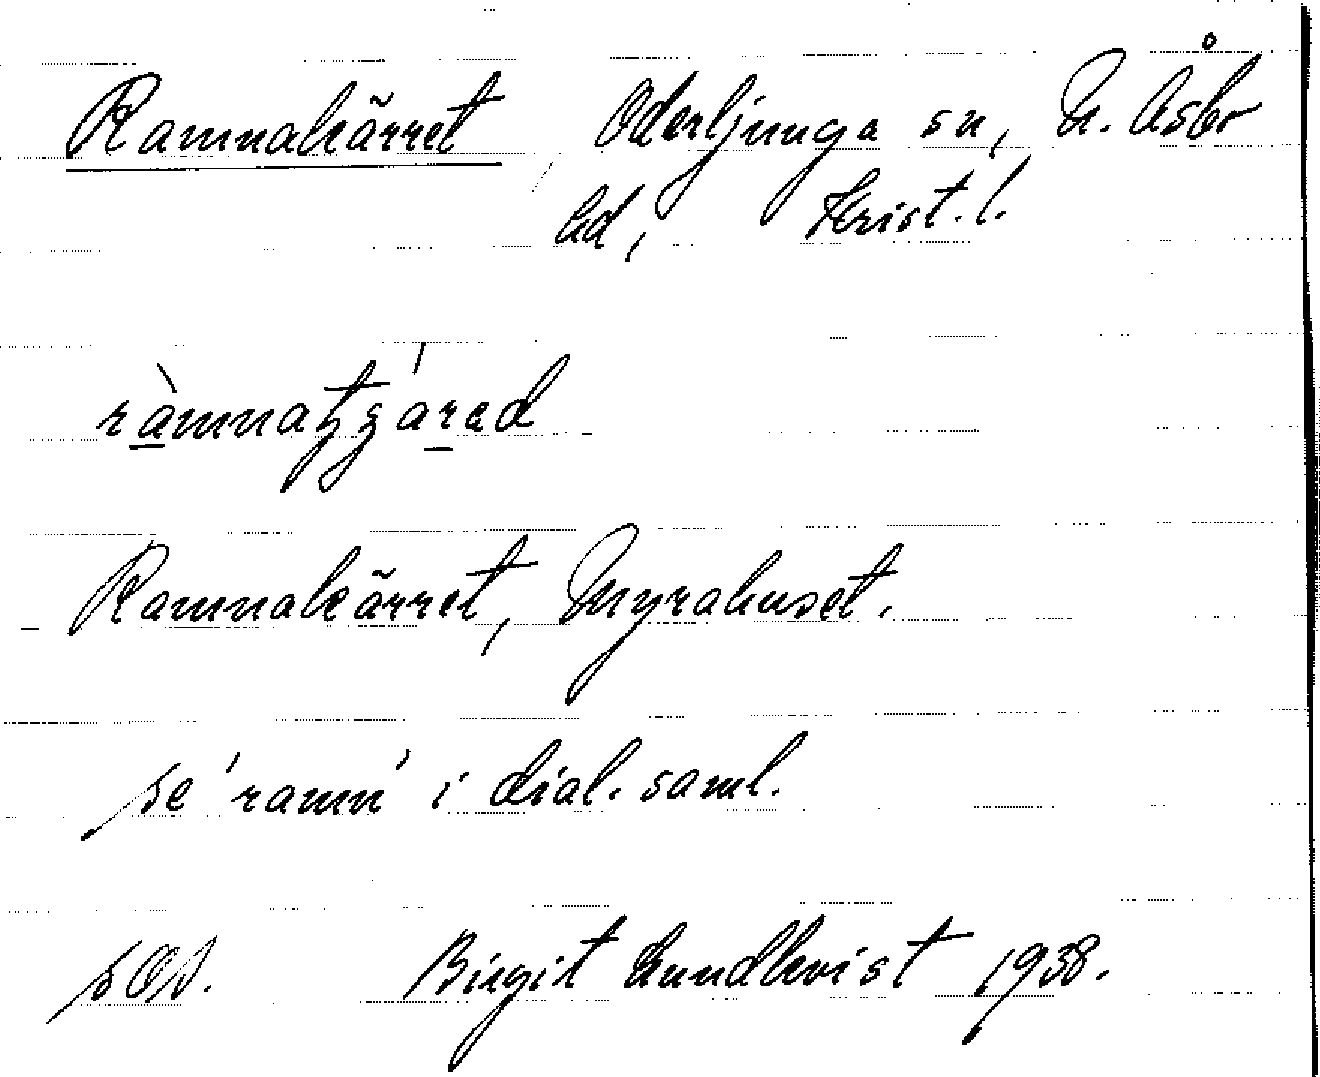 Ramnakärret, Oderljunga sn, N. Åsbo
hd, Krist. l.
Ramnakärret, Myrahuset.
se 'ramn' i dial. saml.
Birgit Lundkvist 1938.